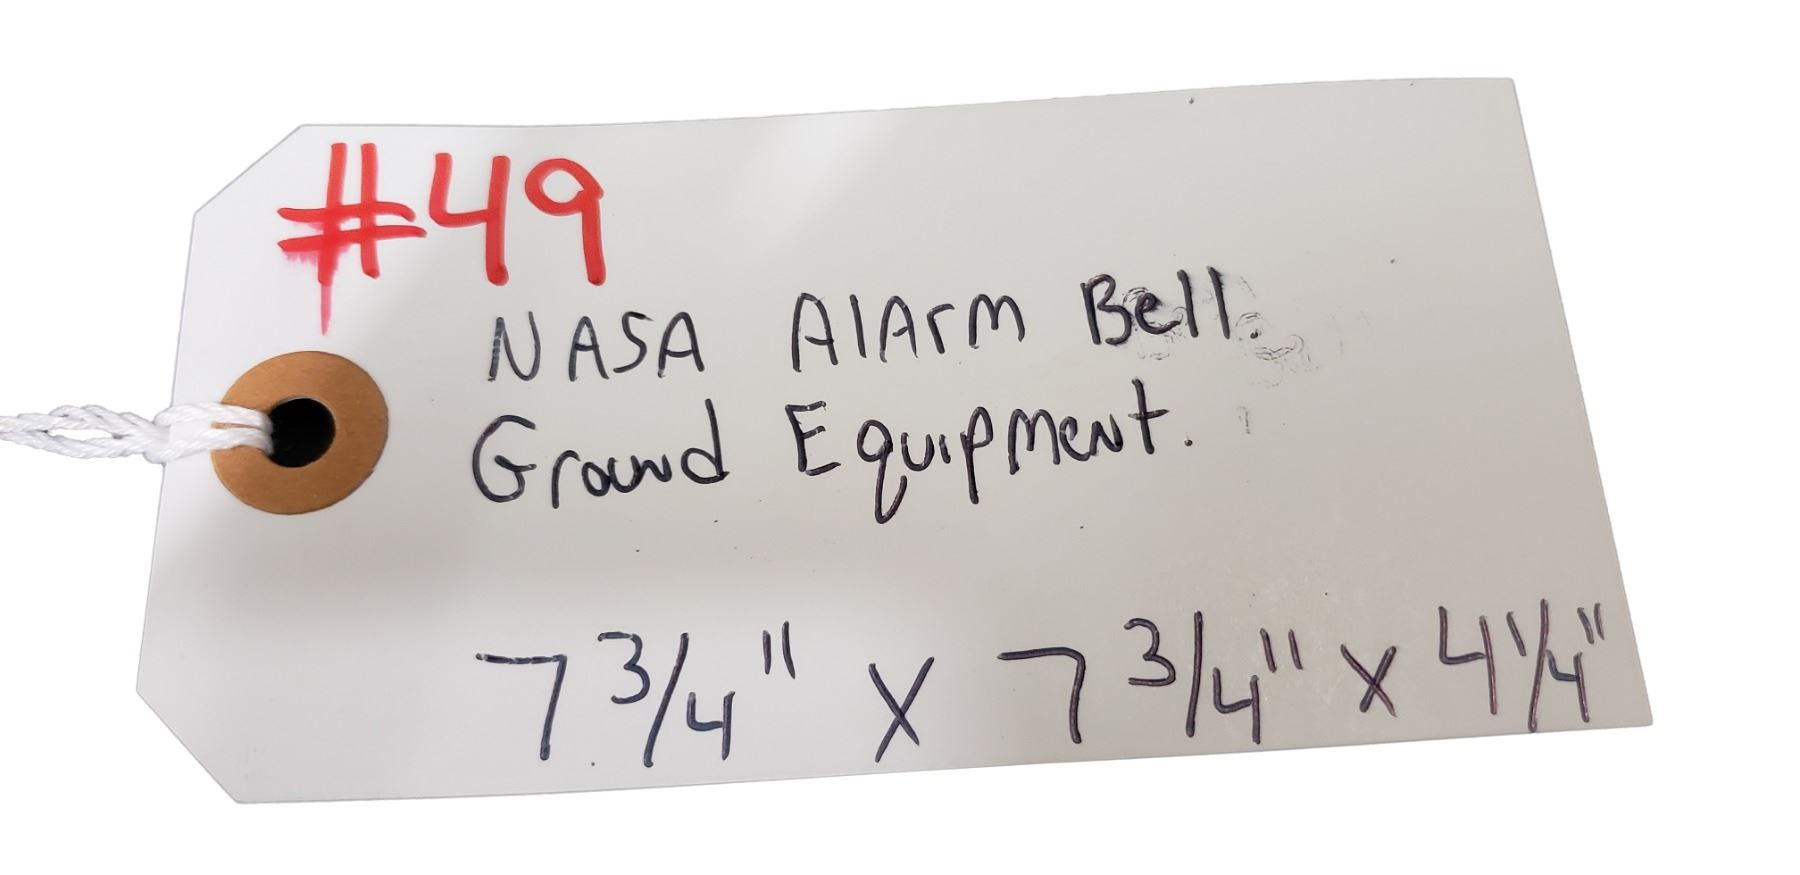 #49
NASA AlArm Bell.
Ground Equipment.
7 3/4" x 7 3/4" x 4 1/4"